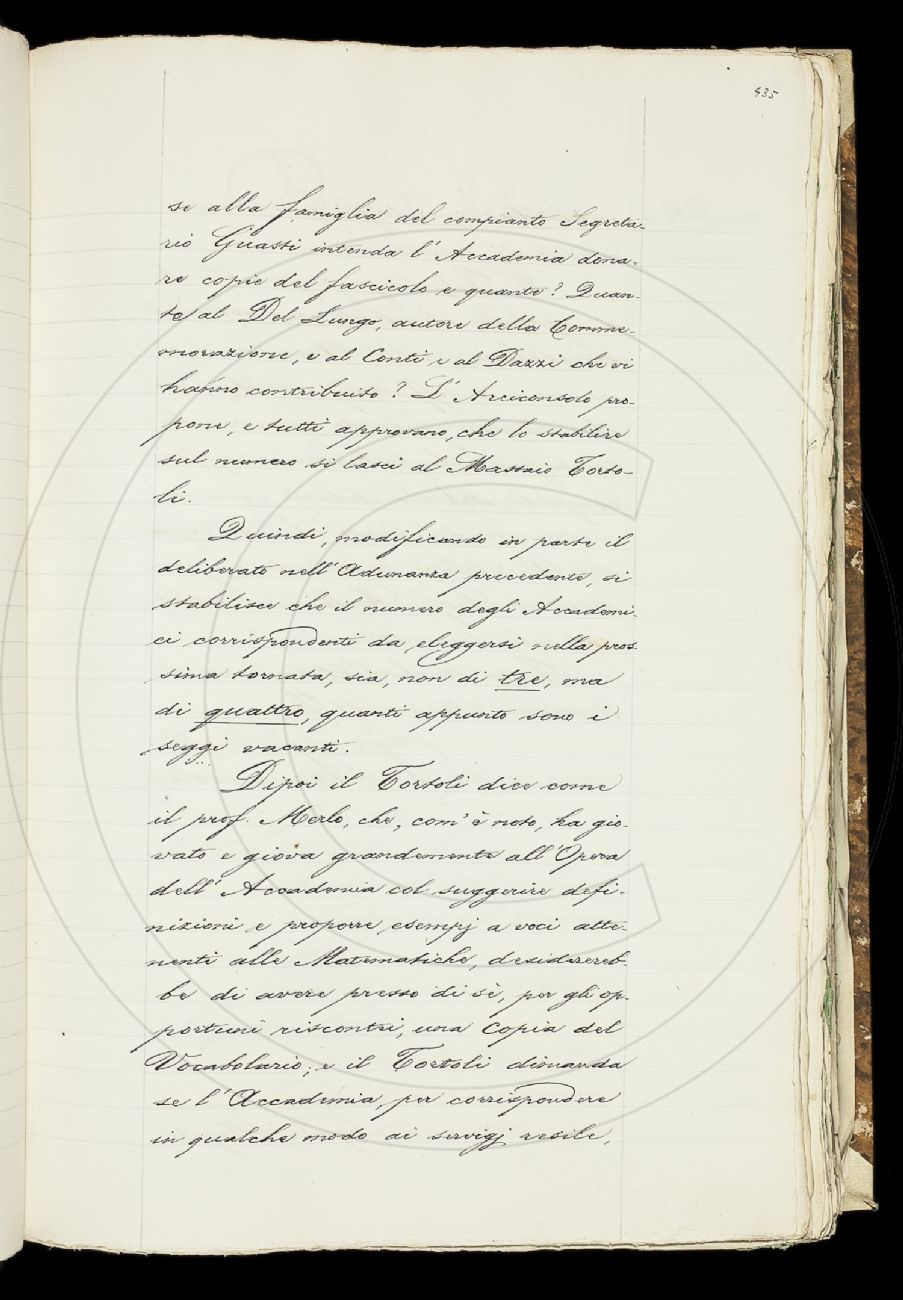 435
se alla famiglia del compianto Segreta-
rio Guasti intenda l'Accademia dona-
re copie del fascicolo e quante? Quan-
te al Del Lungo, autore della Comme-
morazione, e al Conti e al Dazzi che vi
hanno contribuito? L'Arciconsolo pro-
pone, e tutti approvano, che lo stabilire
sul numero si lasci al Massaio Torto-
li.
Quindi, modificando in parte il
deliberato nell'Adunanza precedente, si
stabilisce che il numero degli Accademi-
ci corrispondenti da eleggersi nella pros-
sima tornata, sia, non di tre, ma
di quattro, quanti appunto sono i
seggi vacanti.
Dipoi il Tortoli dice come
il prof. Merlo, che, com'è noto, ha gio-
vato e giova grandemente all'Opera
dell'Accademia col suggerire defi-
nizioni e proporre esempj a voci atte-
nenti alle Matematiche, desidererreb-
be di avere presso di sè, per gli op-
portuni riscontri, una copia del
Vocabolario; e il Tortoli dimanda
se l'Accademia, per corrispondere
in qualche modo ai servigj resile,